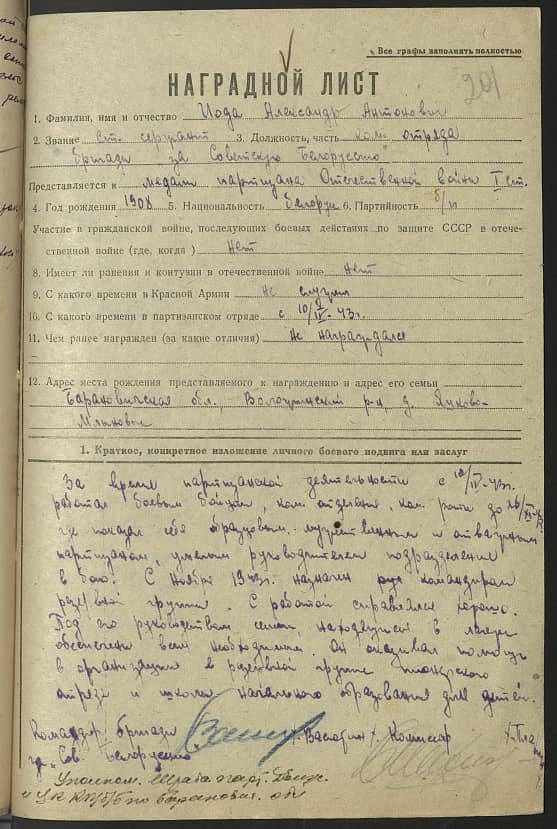 Все графы заполнять полностью
201
НАГРАДНОЙ ЛИСТ
1. Фамилия, имя и отчество Иода Александр Антонович
2. Звание ст. сержант 3. Должность, часть ком. отряда
"Бригади за Советскую Белоруссию"
Представляется к медали партизана Отечественной войни I ст.
4. Год рождения 1908 5. Национальность белорус 6. Партийность б/п
Участие в гражданской войне, последующих боевых действиях по защите СССР в отече-
ственной войне (где, когда) нет
8. Имеет ли ранения и контузии в отечественной войне нет
9. С какого времени в Красной Армии не служил
10. С какого времени в партизанском отряде с 43 г.
11. Чем ранее награжден (за какие отличия) не награждался
12. Адрес места рождения представляемого к награждению и адрес его семьи
Барановичская обл., р-н, д. Яцково-
1. Краткое, конкретное изложение личного боевого подвига или заслуг
За время партизанской деятельности с 43г.
работал боевым бойцом, ком. отделения, ком. роти до
где показал себя образцовым, мужественным и отважным
партизаном, умелым руководителем подразделения
в бою. С Ноября 1943г. назначен командиром
резервной группи. С работой справлялся хорошо.
Под его руководством семьи, находящиеся в лагере
обеспечени всем необходимим. Он оказивал помощь
в организации в резервной группе пионерского
отряда и школи начального образования для детей.
Командир бригади Комисар
за Сов. Белоруссию
Уполном. Штаба парт. движ.
и ЦК КП/б/Б по Баранович. обл